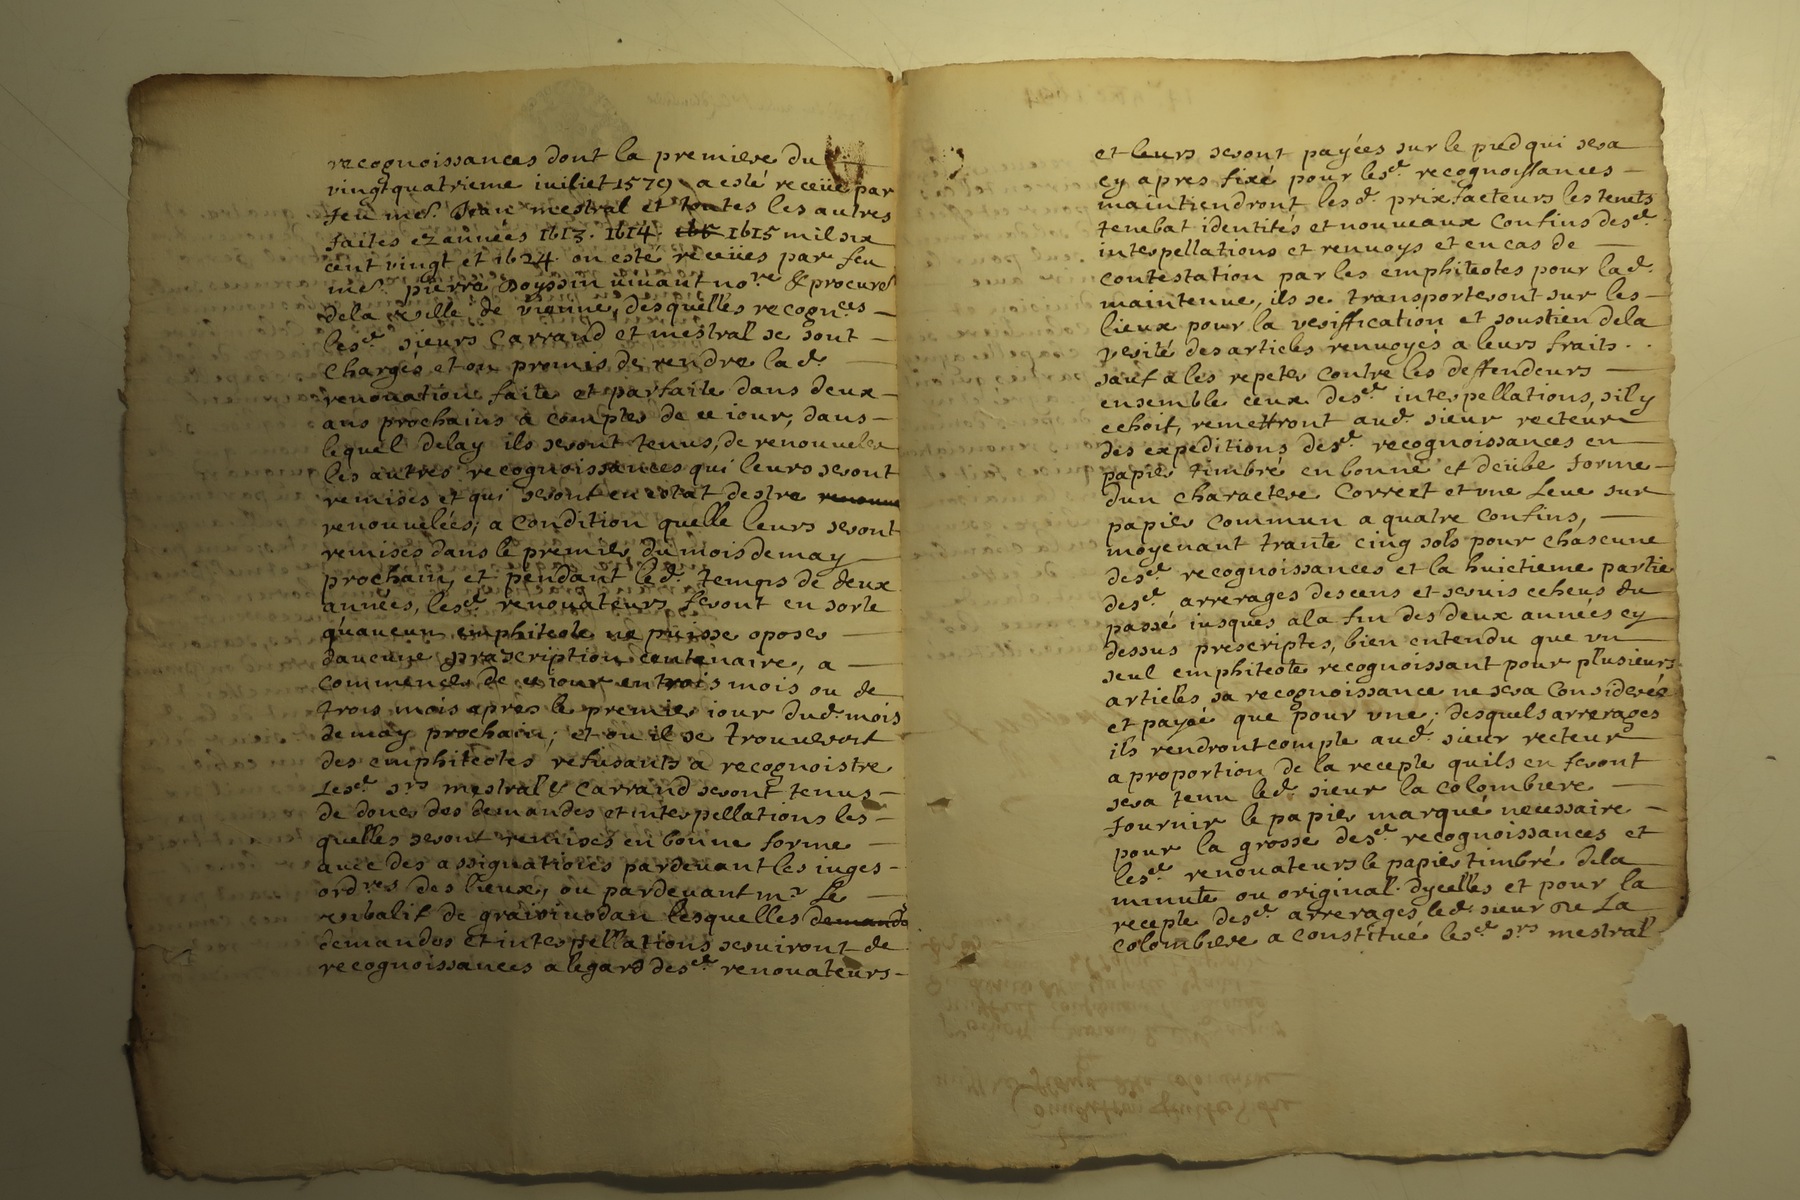 recognoissances dont la premiere du
vingtquatrieme iuiliet 1579 a esté receüe par
feu me.r Jean mestral et toutes les autres
faites ez années 1613. 1614. 1615 mil six
cent vingt et 1624. on esté receües par feu
me.r pierre Boyssin viuant no.re & procure.r
dela ville de vienne, desquelles recogn.ces
les.d sieurs Carrand et mestral se sont
Chargés et on promis de rendre la d.
renouation faite et parfaite dans deux
ans prochains a compter de ce iour, dans
lequel delay ils seront tenus, de renouueler
les autres recognoissances qui leurs seront
remises et qui seront en estat destre
renouuelées; a condition quelle leurs seront
remises dans le premier du mois de may
prochain, et pendant led. temps de deux
années, lesd. renouateurs feront en sorte
quaucun emphiteote ne puisse oposer
daucune prescription centenaire, a
commencer de ce iour en trois mois ou de
trois mois apres le premier iour dud. mois
de may prochain; et ou il se trouueroit
des emphiteotes refusants a recognoistre
Lesd. s.rs mestral & Carrand seront tenus
de doner des demandes et interpellations les
quelles seront remises en bonne forme
auec des assignations pardeuant les iuges
ord.res des lieux, ou pardeuant m.r Le
vibalif de graisiuodan lesquelles demandes
demandes et interpellations seruiront de
recognoissances a legard desd. renouateurs
et leurs seront payées sur le pied qui sera
cy apres fixé pour lesd. recognoissances
maintiendront lesd. prixfacteurs les tenets
tenebat identités et nouueaux Confins desd.
interpellations et renuoys et en cas de
contestation par les emphiteotes pour lad.
maintenue, ils se transporteront sur les
lieux pour la veriffication et soustien dela
verité des articles renuoyés a leurs fraits
sauf a les repeter contre les deffendeurs
ensemble ceux desd. interpellations, sil y
echoit, remettront aud. sieur recteur
des expeditions desd. recognoissances en
papier timbré en bonne et deübe forme
dun charactere Correct et vne Leue sur
papier commun a quatre confins,
moyenant trante cinq sols pour chascune
desd. recognoissances et la huictieme partie
desd. arrerages des cens et seruis echeus du
passé iusques ala fin des deux années cy
dessus prescriptes, bien entendu que vn
seul emphiteote recognoissant pour plusieurs
articles sa recognoissance ne sera Considerée
et payée que pour vne; desquels arrerages
ils rendront compte aud. sieur recteur
a proportion de la recepte quils en feront
sera tenu led. sieur la colombiere
fournir le papier marqué necessaire
pour la grosse desd. recognoissances et
lesd. renouateurs le papier timbré dela
minute ou original dycelles et pour la
recepte desd. arrerages led. sieur de La
Colombiere a constitué lesd. s.rs mestral